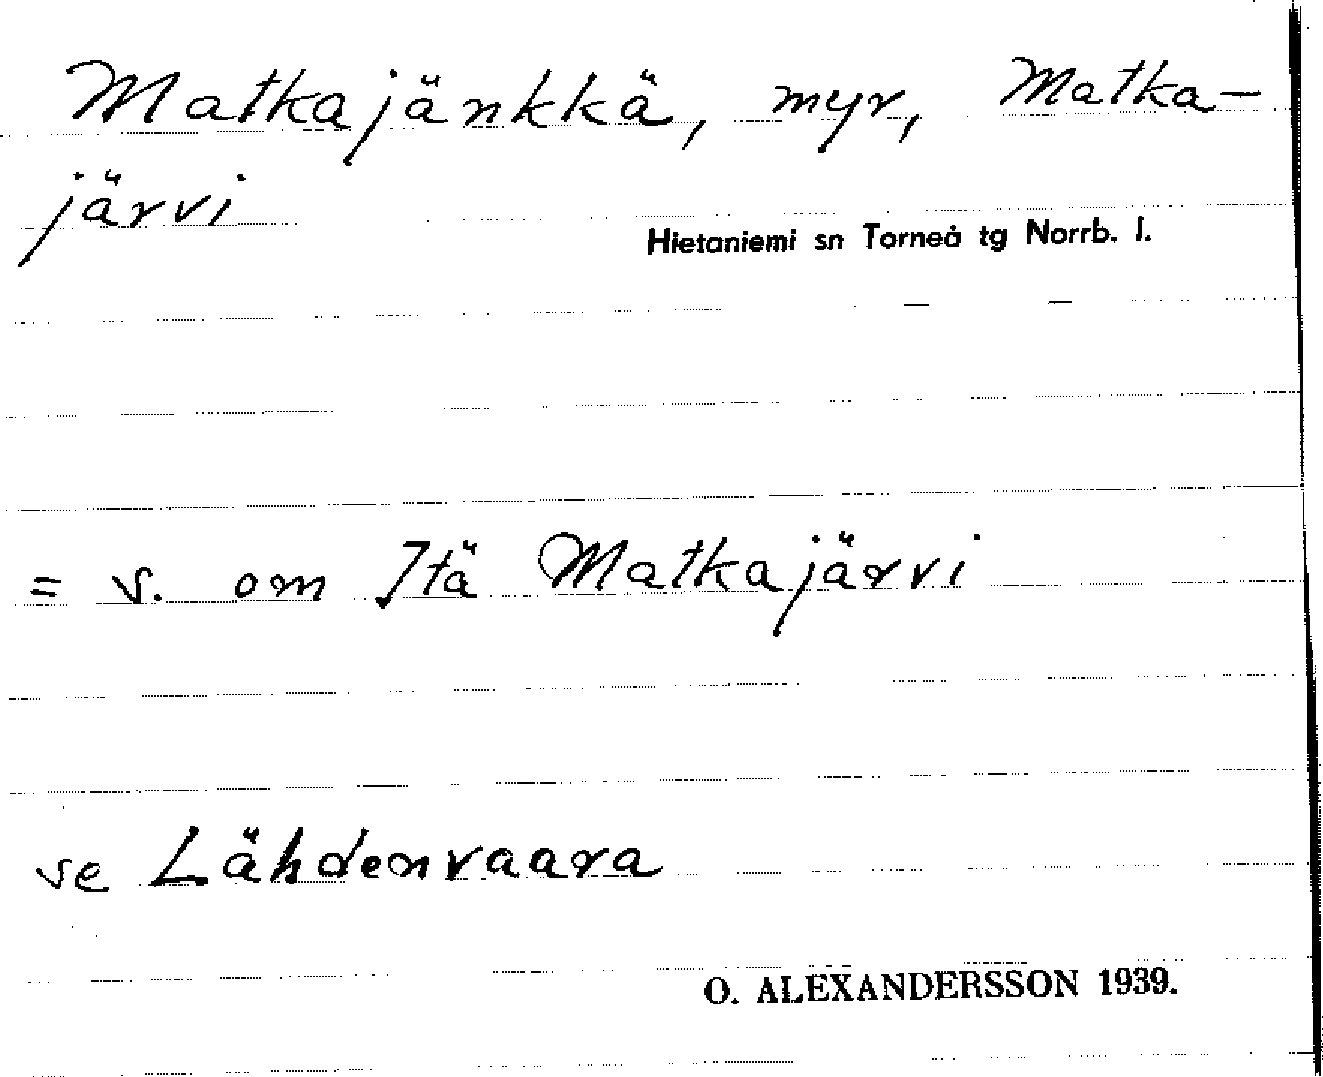 Matkajänkkä, myr, Matka-
järvi
Hietaniemi sn Torneå tg Norrb. l.
= s. om Itä Matkajärvi
se Lähdenvaara
O. ALEXANDERSSON 1939.